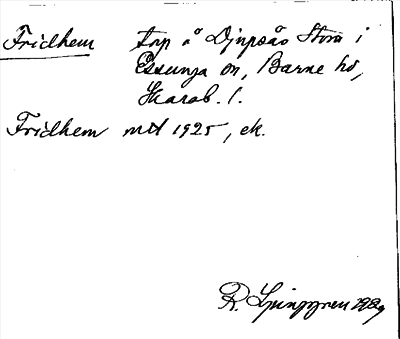 Fridhem torp å Djupsås Stom i
Essunga sn, Barne hd,
Skarab. l.
Fridhem mtl 1925, ek.
R. Ljunggren 1929